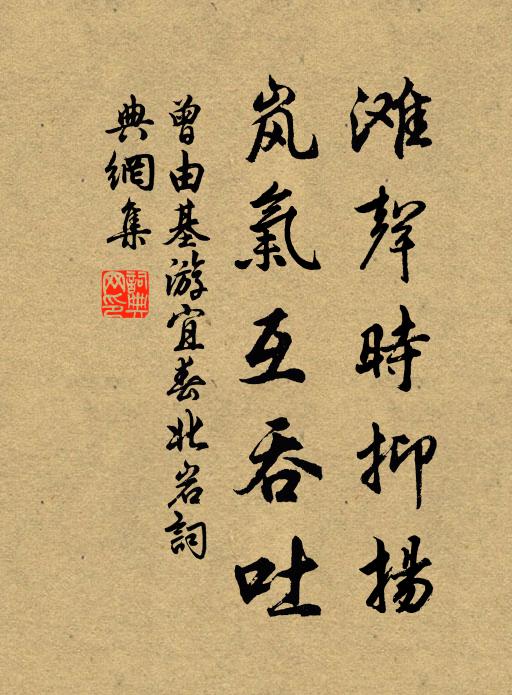 滩聲時抑揚
岚氣互吞吐
曾由基游宜春北岩詞
典網集
詞典網印